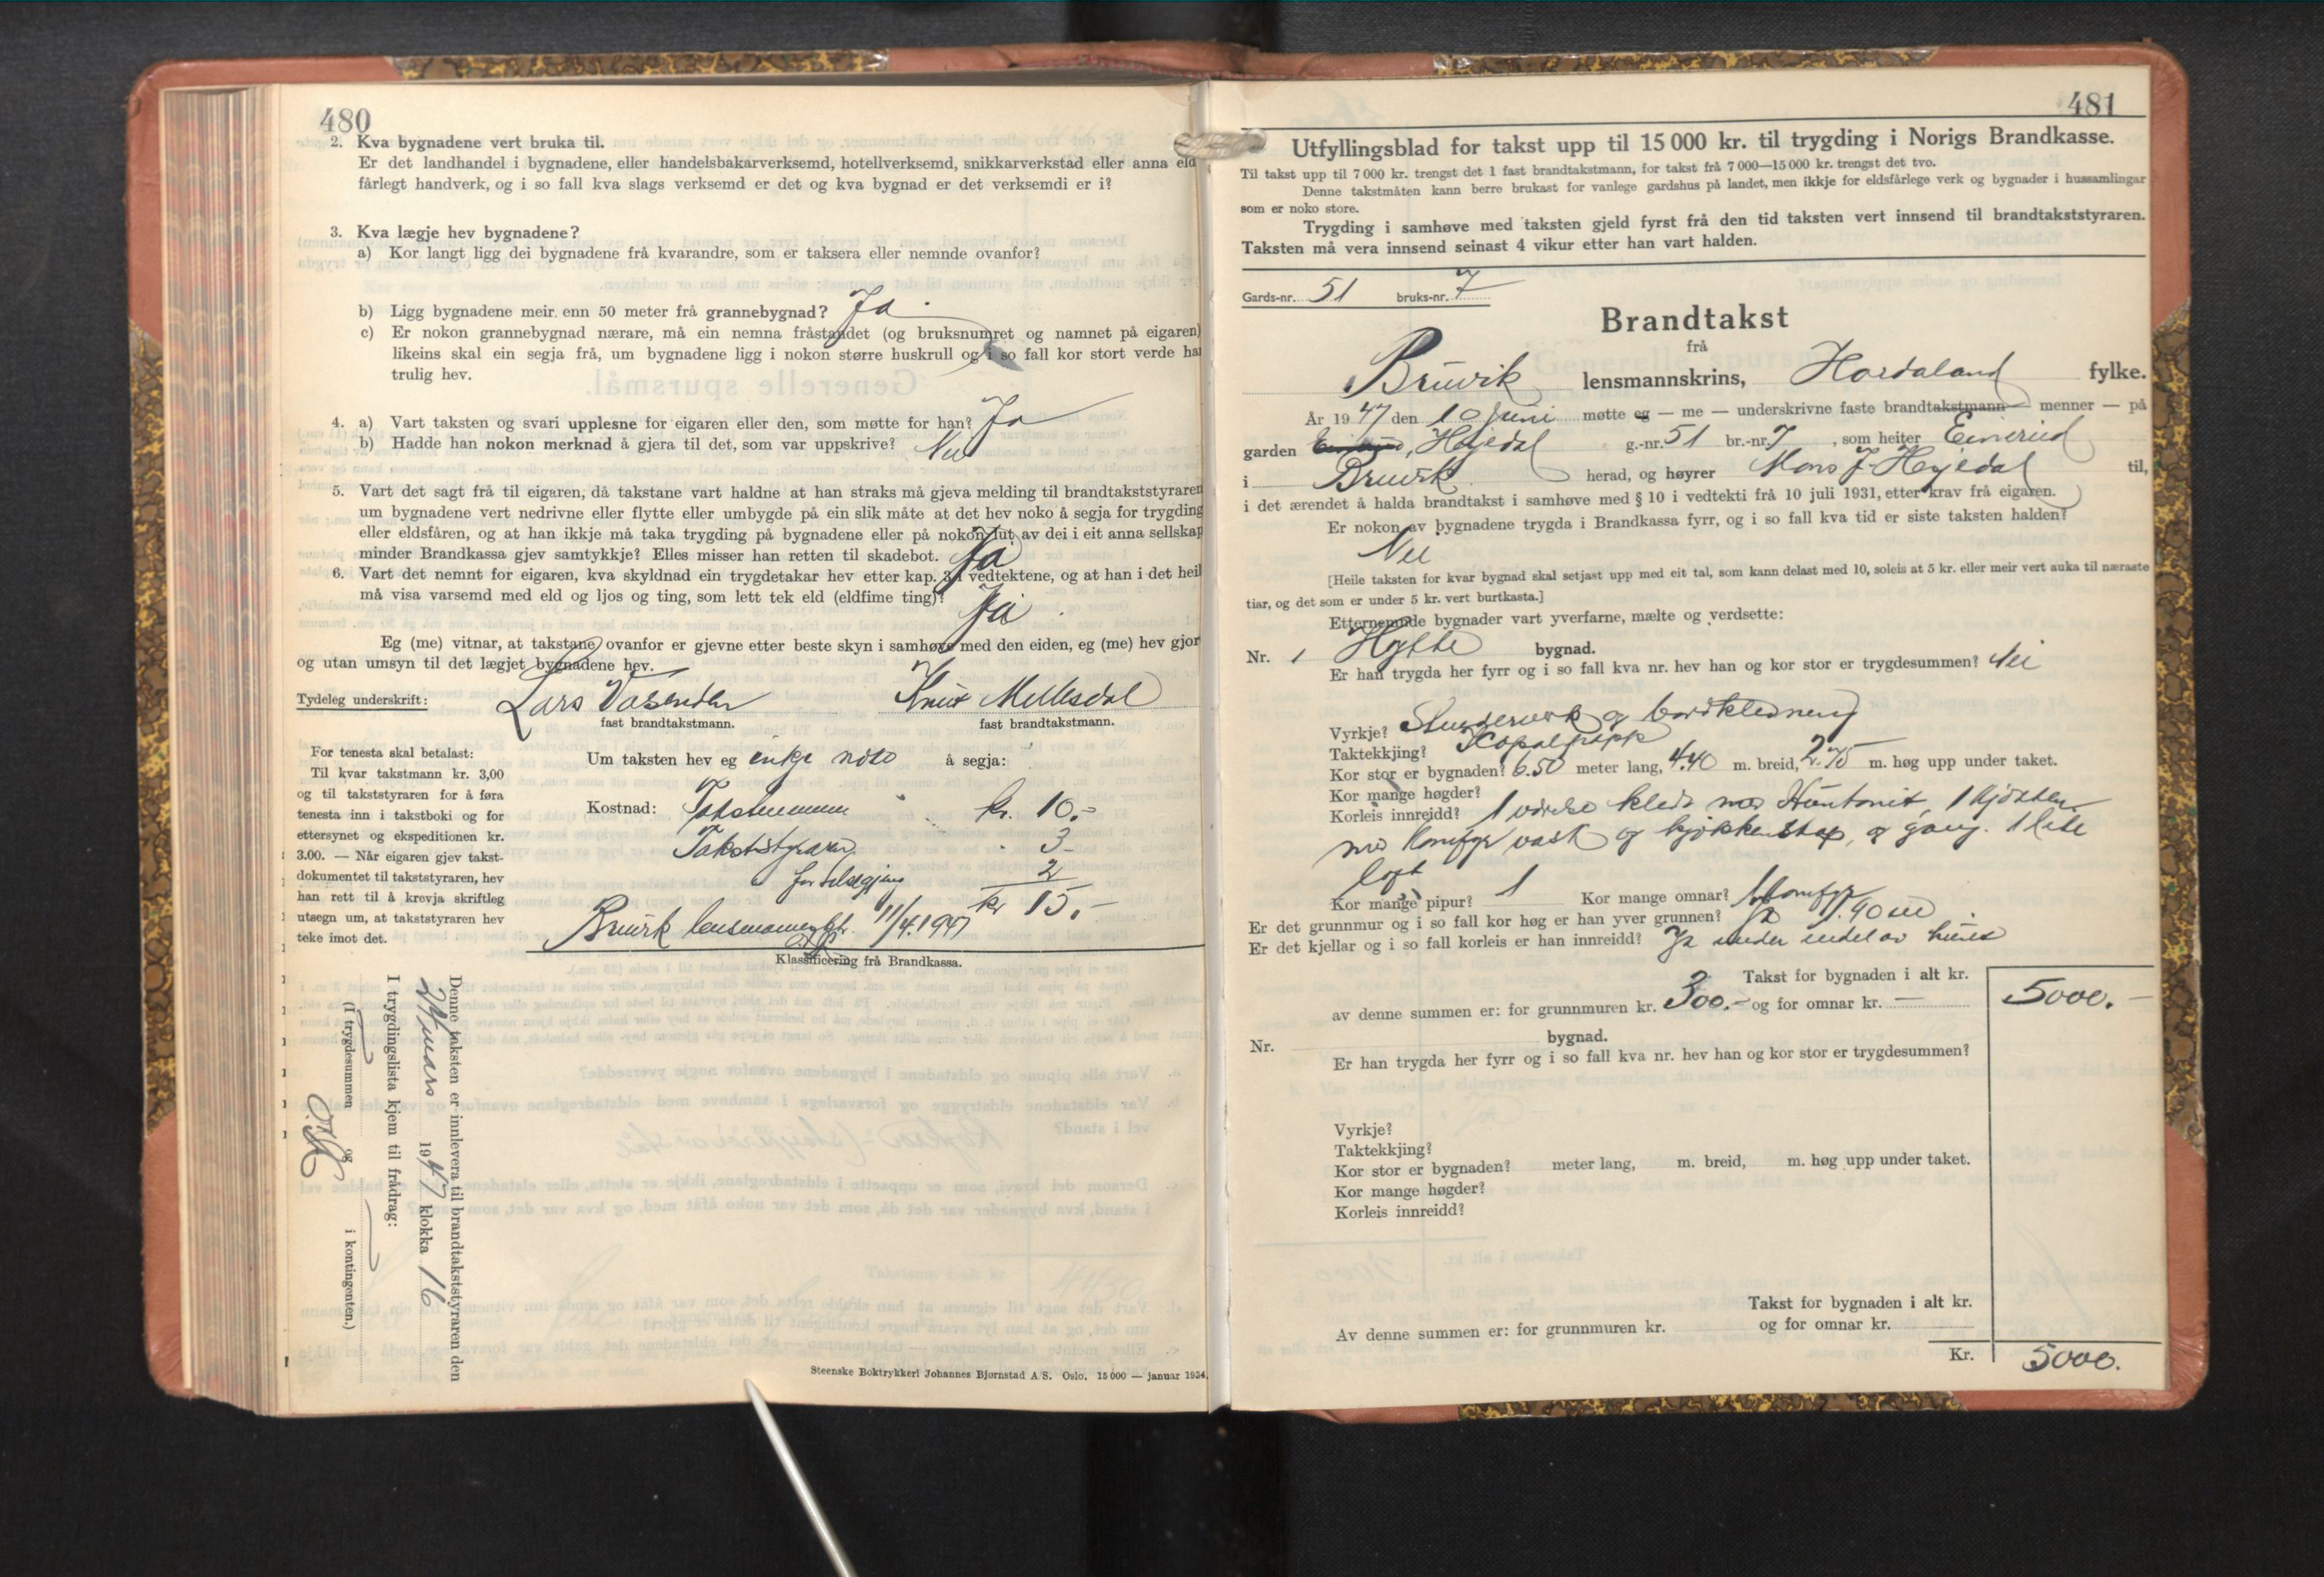 480
2. Kva bygnadene vert bruka til.
Er det landhandel i bygnadene, eller handelsbakarverksemd, hotellverksemd, snikkarverkstad eller anna eld
fårlegt handverk, og i so fall kva slags verksemd er det og kva bygnad er det verksemdi er i?
3. Kva lægje hev bygnadene?
a) Kor langt ligg dei bygnadene frå kvarandre, som er taksera eller nemnde ovanfor?
b) Ligg bygnadene meir enn 50 meter frå grannebygnad? Ja
c) Er nokon grannebygnad nærare, må ein nemna fråstandet (og bruksnumret og namnet på eigaren)
likeins skal ein segja frå, um bygnadene ligg i nokon større huskrull og i so fall kor stort verde ha
trulig hev.
4. a) Vart taksten og svari upplesne for eigaren eller den, som møtte for han? Ja
b) Hadde han nokon merknad å gjera til det, som var uppskrive? Nei
5. Vart det sagt frå til eigaren, då takstane vart haldne at han straks må gjeva melding til brandtakststyraren
um bygnadene vert nedrivne eller flytte eller umbygde på ein slik måte at det hev noko å segja for trygding
eller eldsfåren, og at han ikkje må taka trygding på bygnadene eller på nokon lut av dei i eit anna sellskap
minder Brandkassa gjev samtykkje? Elles misser han retten til skadebot. Ja
6. Vart det nemnt for eigaren, kva skyldnad ein trygdetakar hev etter kap. 3 i vedtektene, og at han i det heil
må visa varsemd med eld og ljos og ting, som lett tek eld (eldfime ting)? Ja
Eg (me) vitnar, at takstane ovanfor er gjevne etter beste skyn i samhøve med den eiden, eg (me) hev gjor
og utan umsyn til det lægjet bygnadene hev.
Tydeleg underskrift: Lars Vasenden Knut Mellesdal
fast brandtakstmann. fast brandtakstmann.
For tenesta skal betalast:
Til kvar takstmann kr. 3,00
og til takststyraren for å føra
tenesta inn i takstboki og for
ettersynet og ekspeditionen kr.
3.00. — Når eigaren gjev takst-
dokumentet til takststyraren, hev
han rett til å krevja skriftleg
utsegn um, at takststyraren hev
teke imot det.
Um taksten hev eg inkje noko å segja:
Kostnad: Takstmennene kr. 10.-
Takststyraren 3-
2
kr 15.-
Bruvik lensmannsktr. 11/4.1947
Klassificering frå Brandkassa.
Denne taksten er innlevera til brandtakststyraren den
24 mars 1947 klokka 16
I trygdingslista kjem til frådrag:
(I trygdesummen og i kontingenten.)
Steenske Boktrykkeri Johannes Bjørnstad A/S. Oslo. 15 000 — januar 1934.
481
Utfyllingsblad for takst upp til 15 000 kr. til trygding i Norigs Brandkasse.
Til takst upp til 7 000 kr. trengst det 1 fast brandtakstmann, for takst frå 7 000—15 000 kr. trengst det tvo.
Denne takstmåten kann berre brukast for vanlege gardshus på landet, men ikkje for eldsfårlege verk og bygnader i hussamlingar
som er noko store.
Trygding i samhøve med taksten gjeld fyrst frå den tid taksten vert innsend til brandtakststyraren.
Taksten må vera innsend seinast 4 vikur etter han vart halden.
Gards-nr. 51 bruks-nr. 7
Brandtakst
frå
Bruvik lensmannskrins, Hordaland fylke.
År 1947 den 10 juni møtte eg — me — underskrivne faste brandtakstmann — menner — på
garden Høyedal g.-nr. 51 br.-nr. 7, som heiter Einerud
i Bruvik herad, og høyrer Mons J. Høyedal til,
i det ærendet å halda brandtakst i samhøve med § 10 i vedtekti frå 10 juli 1931, etter krav frå eigaren.
Er nokon av bygnadene trygda i Brandkassa fyrr, og i so fall kva tid er siste taksten halden?
Nei
[Heile taksten for kvar bygnad skal setjast upp med eit tal, som kann delast med 10, soleis at 5 kr. eller meir vert auka til næraste
tiar, og det som er under 5 kr. vert burtkasta.]
Etternemnde bygnader vart yverfarne, mælte og verdsette:
Nr. 1 Hytte bygnad.
Er han trygda her fyrr og i so fall kva nr. hev han og kor stor er trygdesummen? Nei
Vyrkje? og bordkledning
Taktekkjing? Kopalpapp
Kor stor er bygnaden? 6.50 meter lang, 4.40 m. breid, 2.75 m. høg upp under taket.
Kor mange høgder?
Korleis innreidd? 1 værelse kledt med Huntonit, 1 kjøkken
med komfyr vask og kjøkkenskap, og gang. 1 lite
loft
Kor mange pipur? 1 Kor mange omnar? 1 komfyr
Er det grunnmur og i so fall kor høg er han yver grunnen? Ja 1.40 m
Er det kjellar og i so fall korleis er han innreidd? Ja under endel av huset
Takst for bygnaden i alt kr. 5000.-
av denne summen er: for grunnmuren kr. 300.- og for omnar kr. —
Nr. bygnad.
Er han trygda her fyrr og i so fall kva nr. hev han og kor stor er trygdesummen?
Vyrkje?
Taktekkjing?
Kor stor er bygnaden? meter lang, m. breid, m. høg upp under taket.
Kor mange høgder?
Korleis innreidd?
Takst for bygnaden i alt kr.
Av denne summen er: for grunnmuren kr. og for omnar kr.
Kr. 5000.